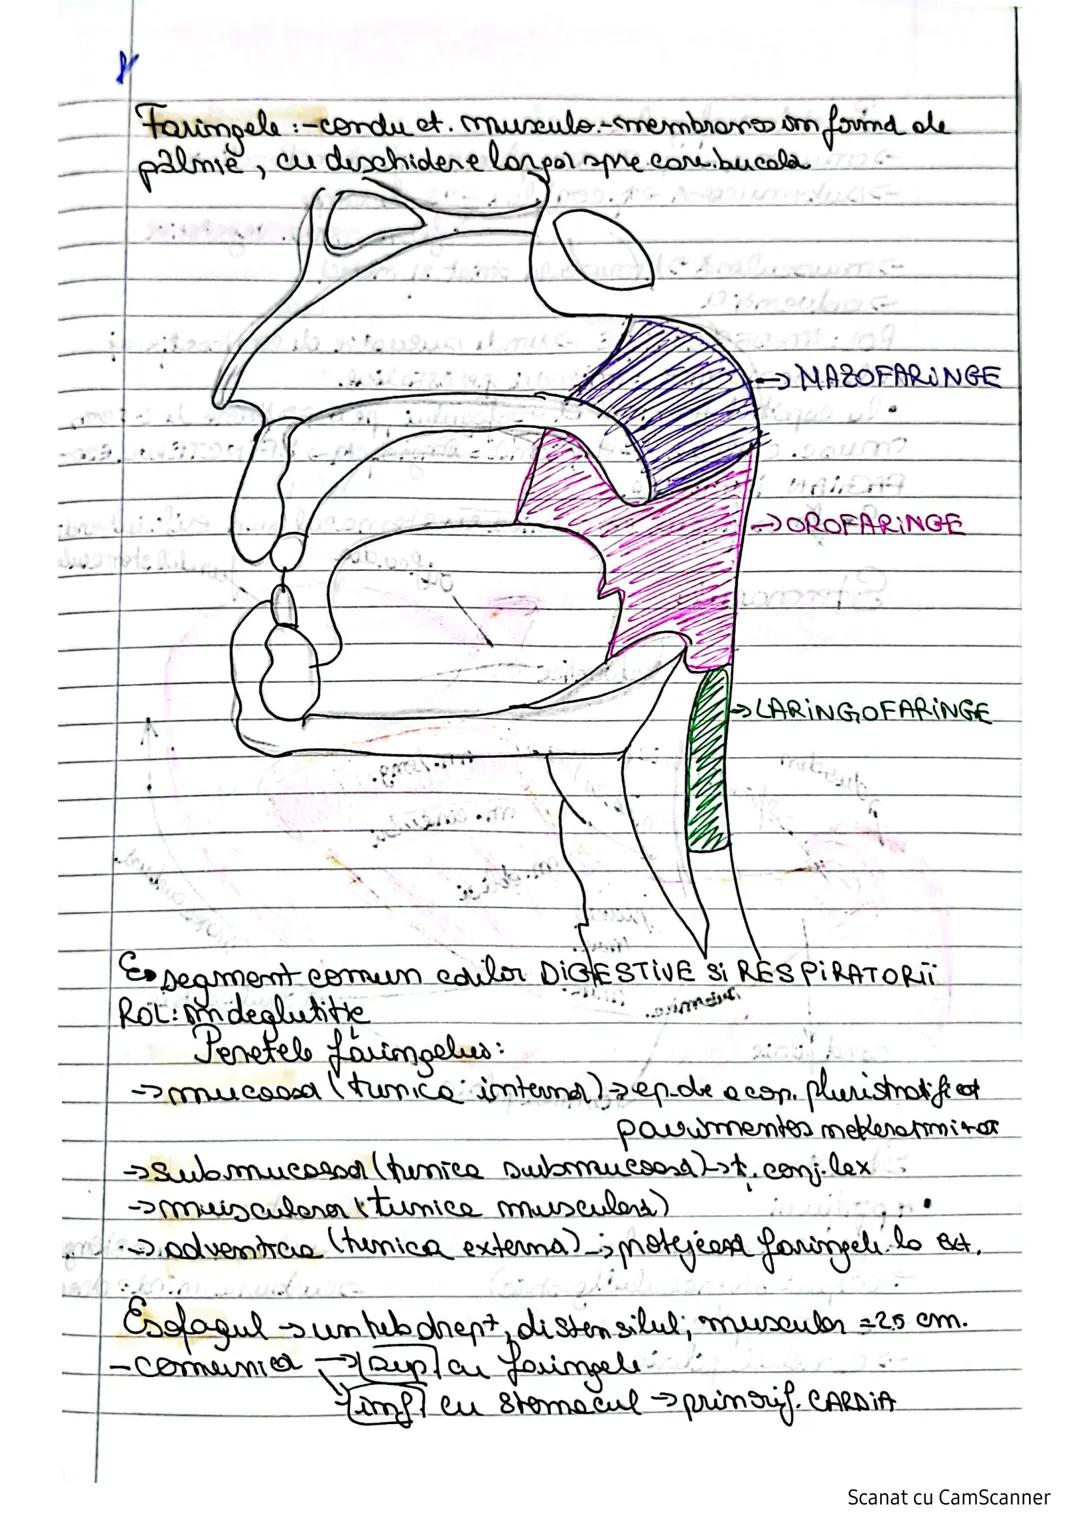 Faringele :- conduct. musculo-membranos în formă de
pâlnie, cu deschidere largă spre cav. bucala
→ NAZOFARINGE
→ OROFARINGE
→ LARINGOFARINGE
segment comun căilor DIGESTIVE SI RESPIRATORII
ROL: în deglutitie
Peretele faringelui:
→ mucoasa (tunica interna) → ep. de acop. pluristratificat
pavimentos nekeratinizat
→ submucoasa (tunica submucoasa) → ț. conj. lax
→ musculara (tunica musculara)
→ adventicia (tunica externa) → protejează faringele la ext.
Esofagul → un tub drept, distensibil; muscular = 25 cm.
- comunica → sup cu faringele
inf cu stomacul → prin orif. CARDIA
Scanat cu CamScanner